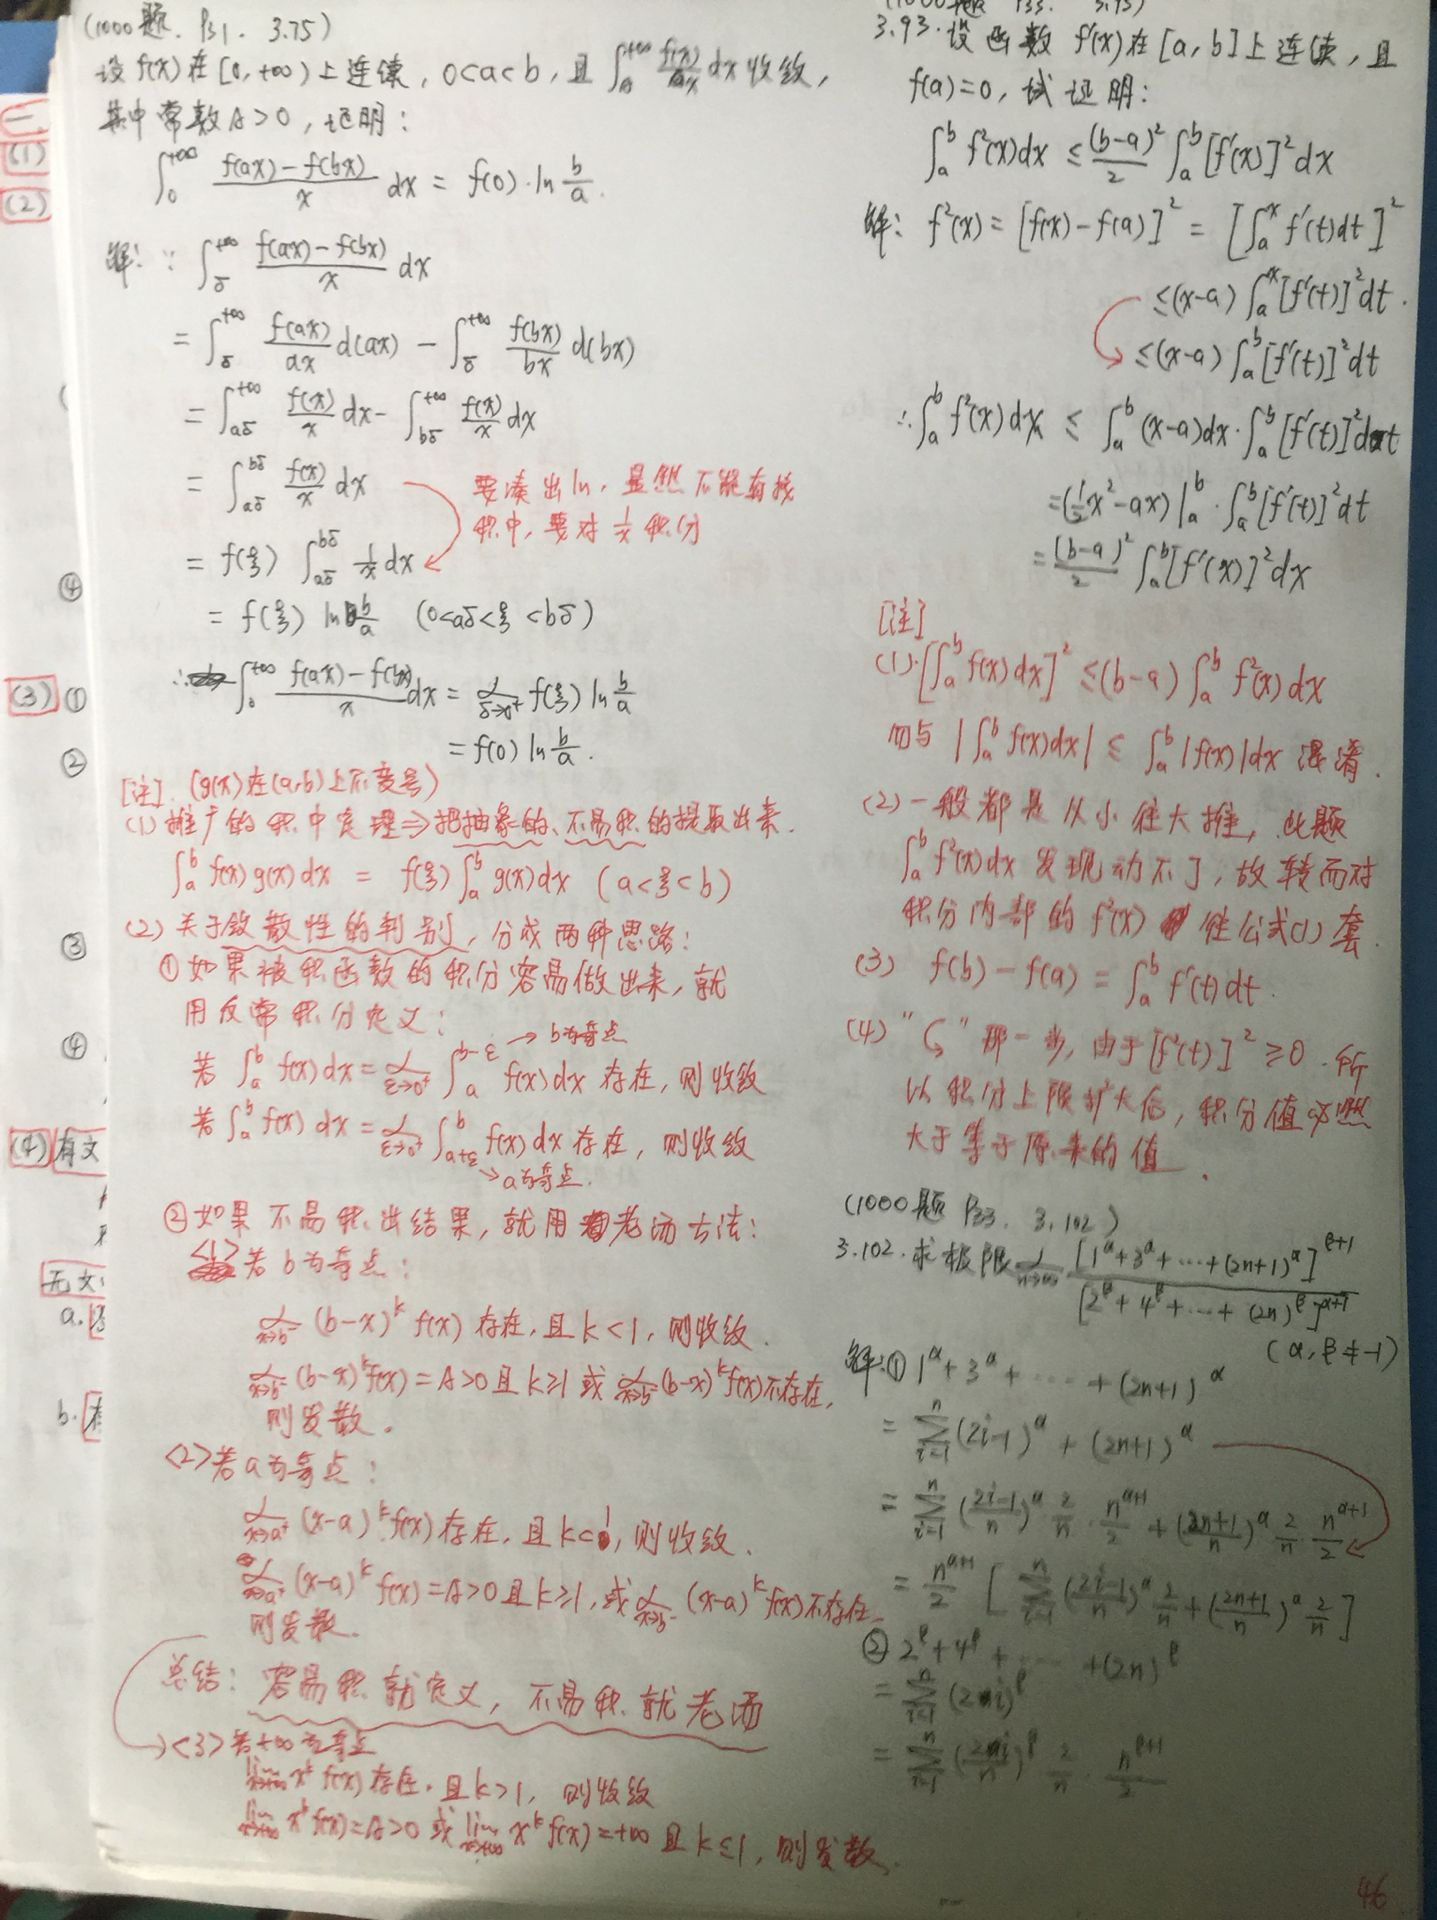 (1000题. P31. 3.75)
设f(x)在[0,+∞)上连续, 0<a<b, 且∫_A^{+∞} f(x)/x dx收敛,
其中常数A>0, 证明:
∫_0^{+∞} (f(ax)-f(bx))/x dx = f(0)·ln b/a.
解: ∵ ∫_δ^{+∞} (f(ax)-f(bx))/x dx
= ∫_δ^{+∞} f(ax)/ax d(ax) - ∫_δ^{+∞} f(bx)/bx d(bx)
= ∫_{aδ}^{+∞} f(x)/x dx - ∫_{bδ}^{+∞} f(x)/x dx
= ∫_{aδ}^{bδ} f(x)/x dx
要凑出ln, 显然不能直接
积中, 要对1/x积分
= f(ξ) ∫_{aδ}^{bδ} 1/x dx
= f(ξ) ln b/a (0<aδ<ξ<bδ)
∴ ∫_0^{+∞} (f(ax)-f(bx))/x dx = lim_{δ→0⁺} f(ξ) ln b/a
= f(0) ln b/a.
[注]. (g(x)在(a,b)上不变号)
(1) 推广的积中定理⇒把抽象的、不易积的提取出来.
∫_a^b f(x)g(x)dx = f(ξ)∫_a^b g(x)dx (a<ξ<b)
(2) 关于敛散性的判别, 分成两种思路:
①如果被积函数的积分容易做出来, 就
用反常积分定义:
→b为奇点
若 ∫_a^b f(x)dx = lim_{ε→0⁺} ∫_a^{b-ε} f(x)dx 存在, 则收敛
若 ∫_a^b f(x)dx = lim_{ε→0⁺} ∫_{a+ε}^b f(x)dx 存在, 则收敛
→a为奇点.
②如果不易积出结果, 就用老汤方法:
<1>若b为奇点:
lim_{x→b⁻} (b-x)^k f(x) 存在, 且k<1, 则收敛.
lim_{x→b⁻} (b-x)^k f(x)=A>0且k≥1或lim_{x→b⁻}(b-x)^k f(x)不存在,
则发散.
<2>若a为奇点:
lim_{x→a⁺} (x-a)^k f(x)存在, 且k<1, 则收敛.
lim_{x→a⁺} (x-a)^k f(x)=A>0且k≥1, 或lim_{x→b⁻} (x-a)^k f(x)不存在
则发散.
总结: 容易积就定义, 不易积就老汤
→<3>若+∞为奇点
lim_{x→+∞} x^k f(x)存在, 且k>1, 则收敛
lim_{x→+∞} x^k f(x)=A>0 或 lim_{x→+∞} x^k f(x)=+∞ 且k≤1, 则发散.
(1000题 P33. 3.93)
3.93. 设函数f'(x)在[a,b]上连续, 且
f(a)=0, 试证明:
∫_a^b f²(x)dx ≤ (b-a)²/2 ∫_a^b [f'(x)]²dx
解: f²(x) = [f(x)-f(a)]² = [∫_a^x f'(t)dt]²
≤(x-a) ∫_a^x [f'(t)]²dt.
≤(x-a) ∫_a^b [f'(t)]²dt
∴ ∫_a^b f²(x)dx ≤ ∫_a^b (x-a)dx·∫_a^b [f'(t)]²dt
=(1/2 x²-ax)|_a^b · ∫_a^b [f'(t)]²dt
= (b-a)²/2 ∫_a^b [f'(x)]²dx
[注]
(1)·[∫_a^b f(x)dx]² ≤(b-a) ∫_a^b f²(x)dx
勿与 |∫_a^b f(x)dx| ≤ ∫_a^b |f(x)|dx 混淆.
(2) 一般都是从小往大推, 此题
∫_a^b f²(x)dx 发现动不了, 故转而对
积分内部的f²(x) 往公式(1)套.
(3) f(b)-f(a) = ∫_a^b f'(t)dt.
(4) "⤹" 那一步, 由于[f'(t)]²≥0. 所
以积分上限扩大后, 积分值必然
大于等于原来的值.
(1000题 P33. 3.102)
3.102. 求极限 lim_{n→∞} [1^α+3^α+…+(2n+1)^α]^{β+1} / [2^β+4^β+…+(2n)^β]^{α+1}
(α, β≠-1)
解: ① 1^α+3^α+……+(2n+1)^α
= Σ_{i=1}^n (2i-1)^α + (2n+1)^α
= Σ_{i=1}^n ((2i-1)/n)^α 2/n · n^{α+1}/2 + ((2n+1)/n)^α 2/n · n^{α+1}/2
= n^{α+1}/2 [Σ_{i=1}^n ((2i-1)/n)^α 2/n + ((2n+1)/n)^α 2/n]
② 2^β+4^β+……+(2n)^β
= Σ_{i=1}^n (2i)^β
= Σ_{i=1}^n (2i/n)^β 2/n n^{β+1}/2
46
一.
(1)
(2)
④
(3) ①
②
③
④
(4) 有文
无文
a.
b.